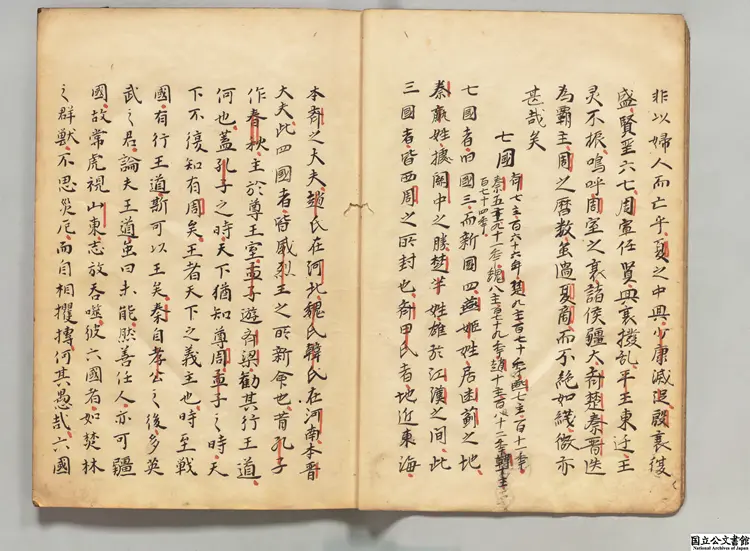 非以婦人而亡乎夏之中興少康滅浞殷衰復
盛賢聖六七周宣任賢興衰撥乱平王東迁王
灵不振嗚呼周室之衰諸侯彊大斉楚秦晋迭
為覇主周之暦数虽過夏商而不絶如綫微亦
甚哉矣
七國
斉七主百六十六年楚九主百七十年燕七主百十一年
秦五主九十一年魏八主百十九年趙十主百八十二年韓十主
百七十四年
七國者旧國三而新國四燕姬姓居幽薊之地
秦嬴姓據關中之勝楚芈姓雄於江漢之間此
三國者皆西周之所封也斉田氏者地近東海
本斉之大夫趙氏在河北魏氏韓氏在河南本晋
大夫此四國者皆威烈王之所新命也昔孔子
作春秋主於尊王室孟子遊斉梁勸其行王道
何也蓋孔子之時天下猶知尊周孟子之時天
下不復知有周矣王者天下之義主也時至戦
國有行王道斯可以王矣秦自孝公之後多英
武之君論夫王道虽曰未能然善任人亦可彊
國故常虎視山東志放吞噬彼六國者如焚林
之群獣不思災厄而自相攫搏何其愚哉六國
国立公文書館
National Archives of Japan